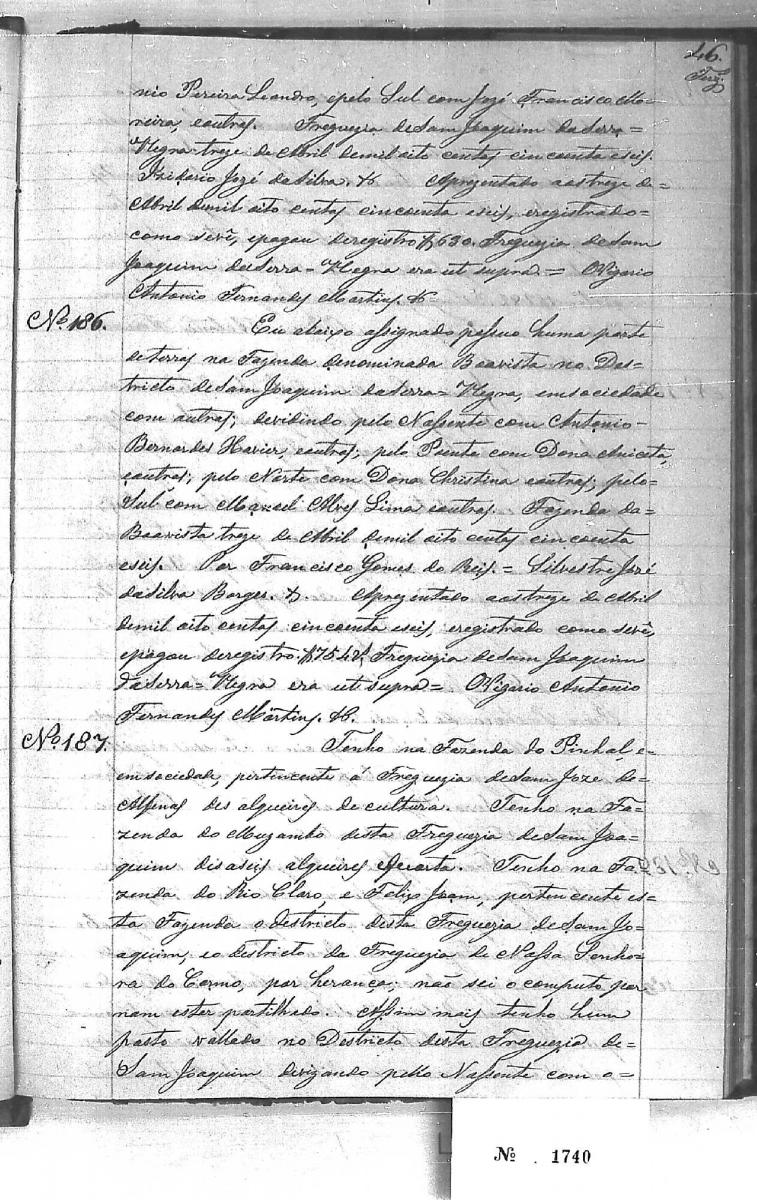 46.
nio Pereira Leandro, epelo Sul com Jozé Francisco Mo-
reira, eoutros. Freguezia deSam Joaquim daSerra=
Negra treze de Abril demil oito centos cincoenta eseis.
Izidorio Jozé daSilva. &. Aprezentado aostreze de=
Abril demil oito centos cincoenta eseis, eregistrado=
como sevê, epagou deregistro $630. Freguezia deSam
Joaquim daSerra=Negra era ut supra.= OVigario
Antonio Fernandes Martins. &=
No. 186.
Eu abaixo assignado possuo huma parte
deterras na Fazenda denominada Boavista no Des=
tricto deSam Joaquim daSerra=Negra, emsociedade
com outros; devidindo pelo Nassente com Antonio=
Bernardes Xavier, eoutros; pelo Puente com Dona Aniceta,
eoutros; pelo Norte com Dona Christina eoutros; pelo=
Sul com Manoel Alves Lima eoutros. Fazenda da=
Boavista treze de Abril demil oito centos cincoenta
eseis. Por Francisco Gomes do Reis.= Silvestre Jozé
daSilva Borges. &. Aprezentado aostreze de Abril
demil oito centos cincoenta eseis, eregistrado como sevê,
epagou deregistro Freguezia deSam Joaquim
daSerra=Negra era ut supra= OVigario Antonio
Fernandes Martins. &.
No. 187.
Tenho na Fazenda do Pinhal, e=
emsociedade, pertencente á Freguezia deSam Joze de=
Alfenas des alqueires de cultura. Tenho na Fa=
zenda do Muzambo desta Freguezia deSam Joa=
quim disaseis alqueires equarta. Tenho na Fa=
zenda do Rio Claro, e Felizo Joam, pertencente es=
ta Fazenda o destricto desta Freguezia deSam Jo=
aquim, eo destricto da Freguezia de Nossa Senho=
ra do Carmo, por herança; não sei o computo por
nam estar partilhado. Assim mais tenho hum
pasto vallado no Destricto desta Freguezia de=
Sam Joaquim devizando pello Nassente com o=
No . 1740